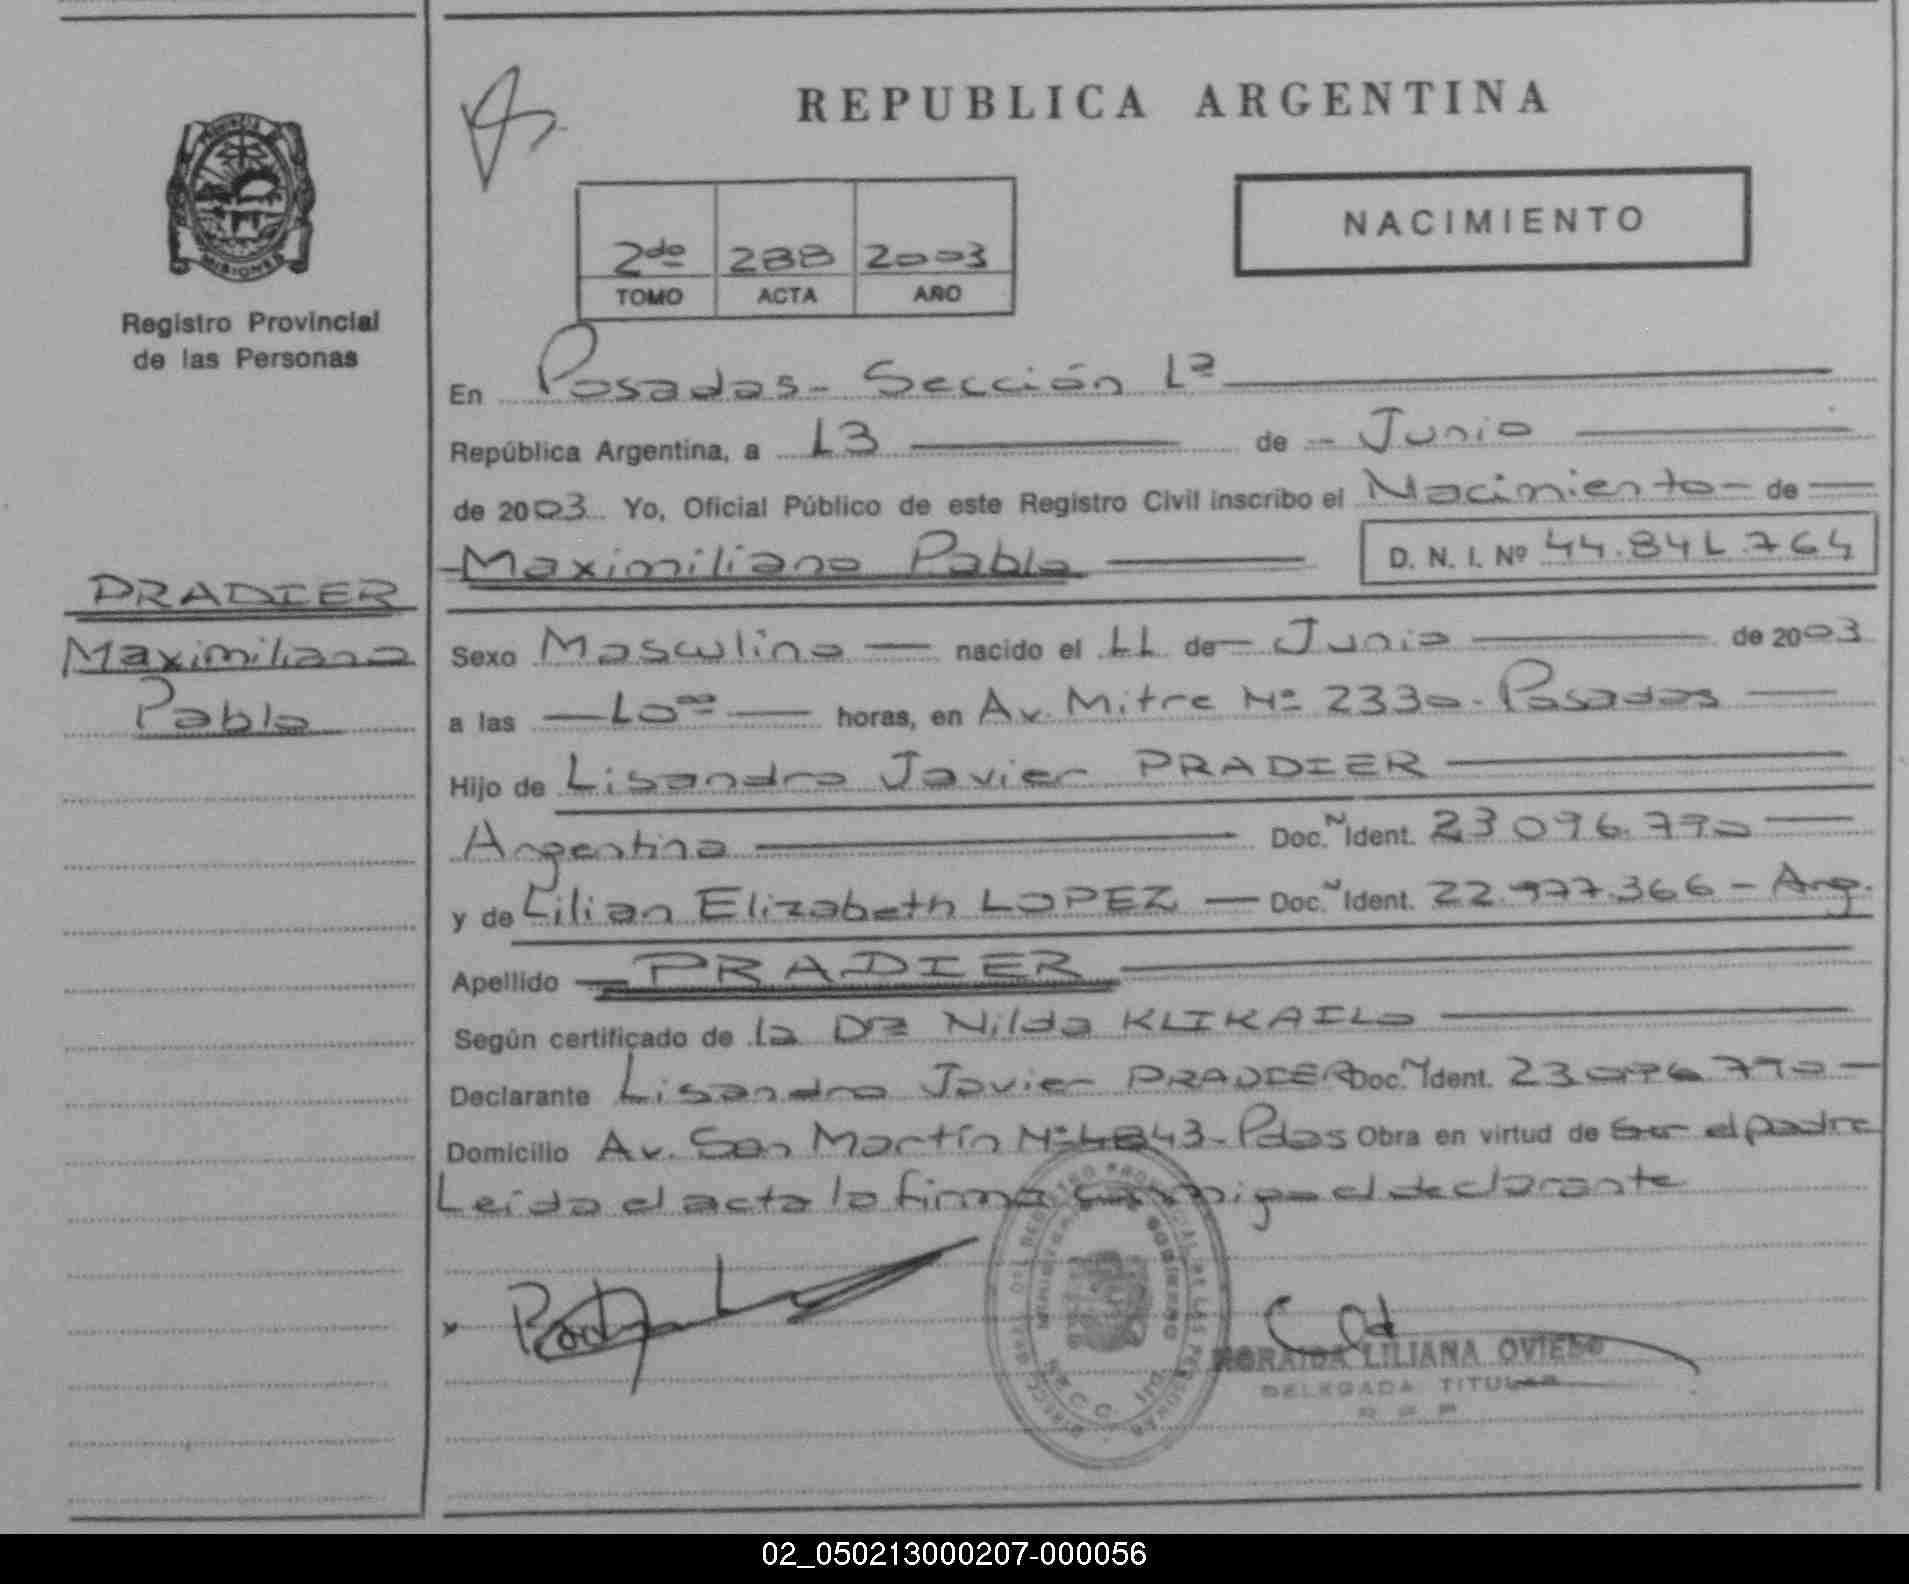 REPUBLICA ARGENTINA
NACIMIENTO
2do 288 2003
TOMO ACTA AÑO
MISIONES
Registro Provincial
de las Personas
PRADIER
Maximiliano
Pablo
En Posadas - Sección 1ª
República Argentina, a 13 de - Junio
de 2003 Yo, Oficial Público de este Registro Civil inscribo el Nacimiento - de
Maximiliano Pablo D. N. I. Nº 44.841.764
Sexo Masculino nacido el 11 de Junio de 2003
a las 10ºº horas, en Av. Mitre Nº 2330 - Posadas
Hijo de Lisandro Javier PRADIER
Argentina Doc. Ident. 23 096.790
y de Lilian Elizabeth LOPEZ Doc. Ident. 22.977.366 - Arg.
Apellido PRADIER
Según certificado de la Dra Nilda KLIKAILO
Declarante Lisandro Javier PRADIER Doc. Ident. 23.096.790
Domicilio Av. San Martín Nº 1843 - Pdas Obra en virtud de ser el padre
Leída el acta la firma conmigo el declarante
LILIANA OVIEDO
DELEGADA TITULAR
02_050213000207-000056